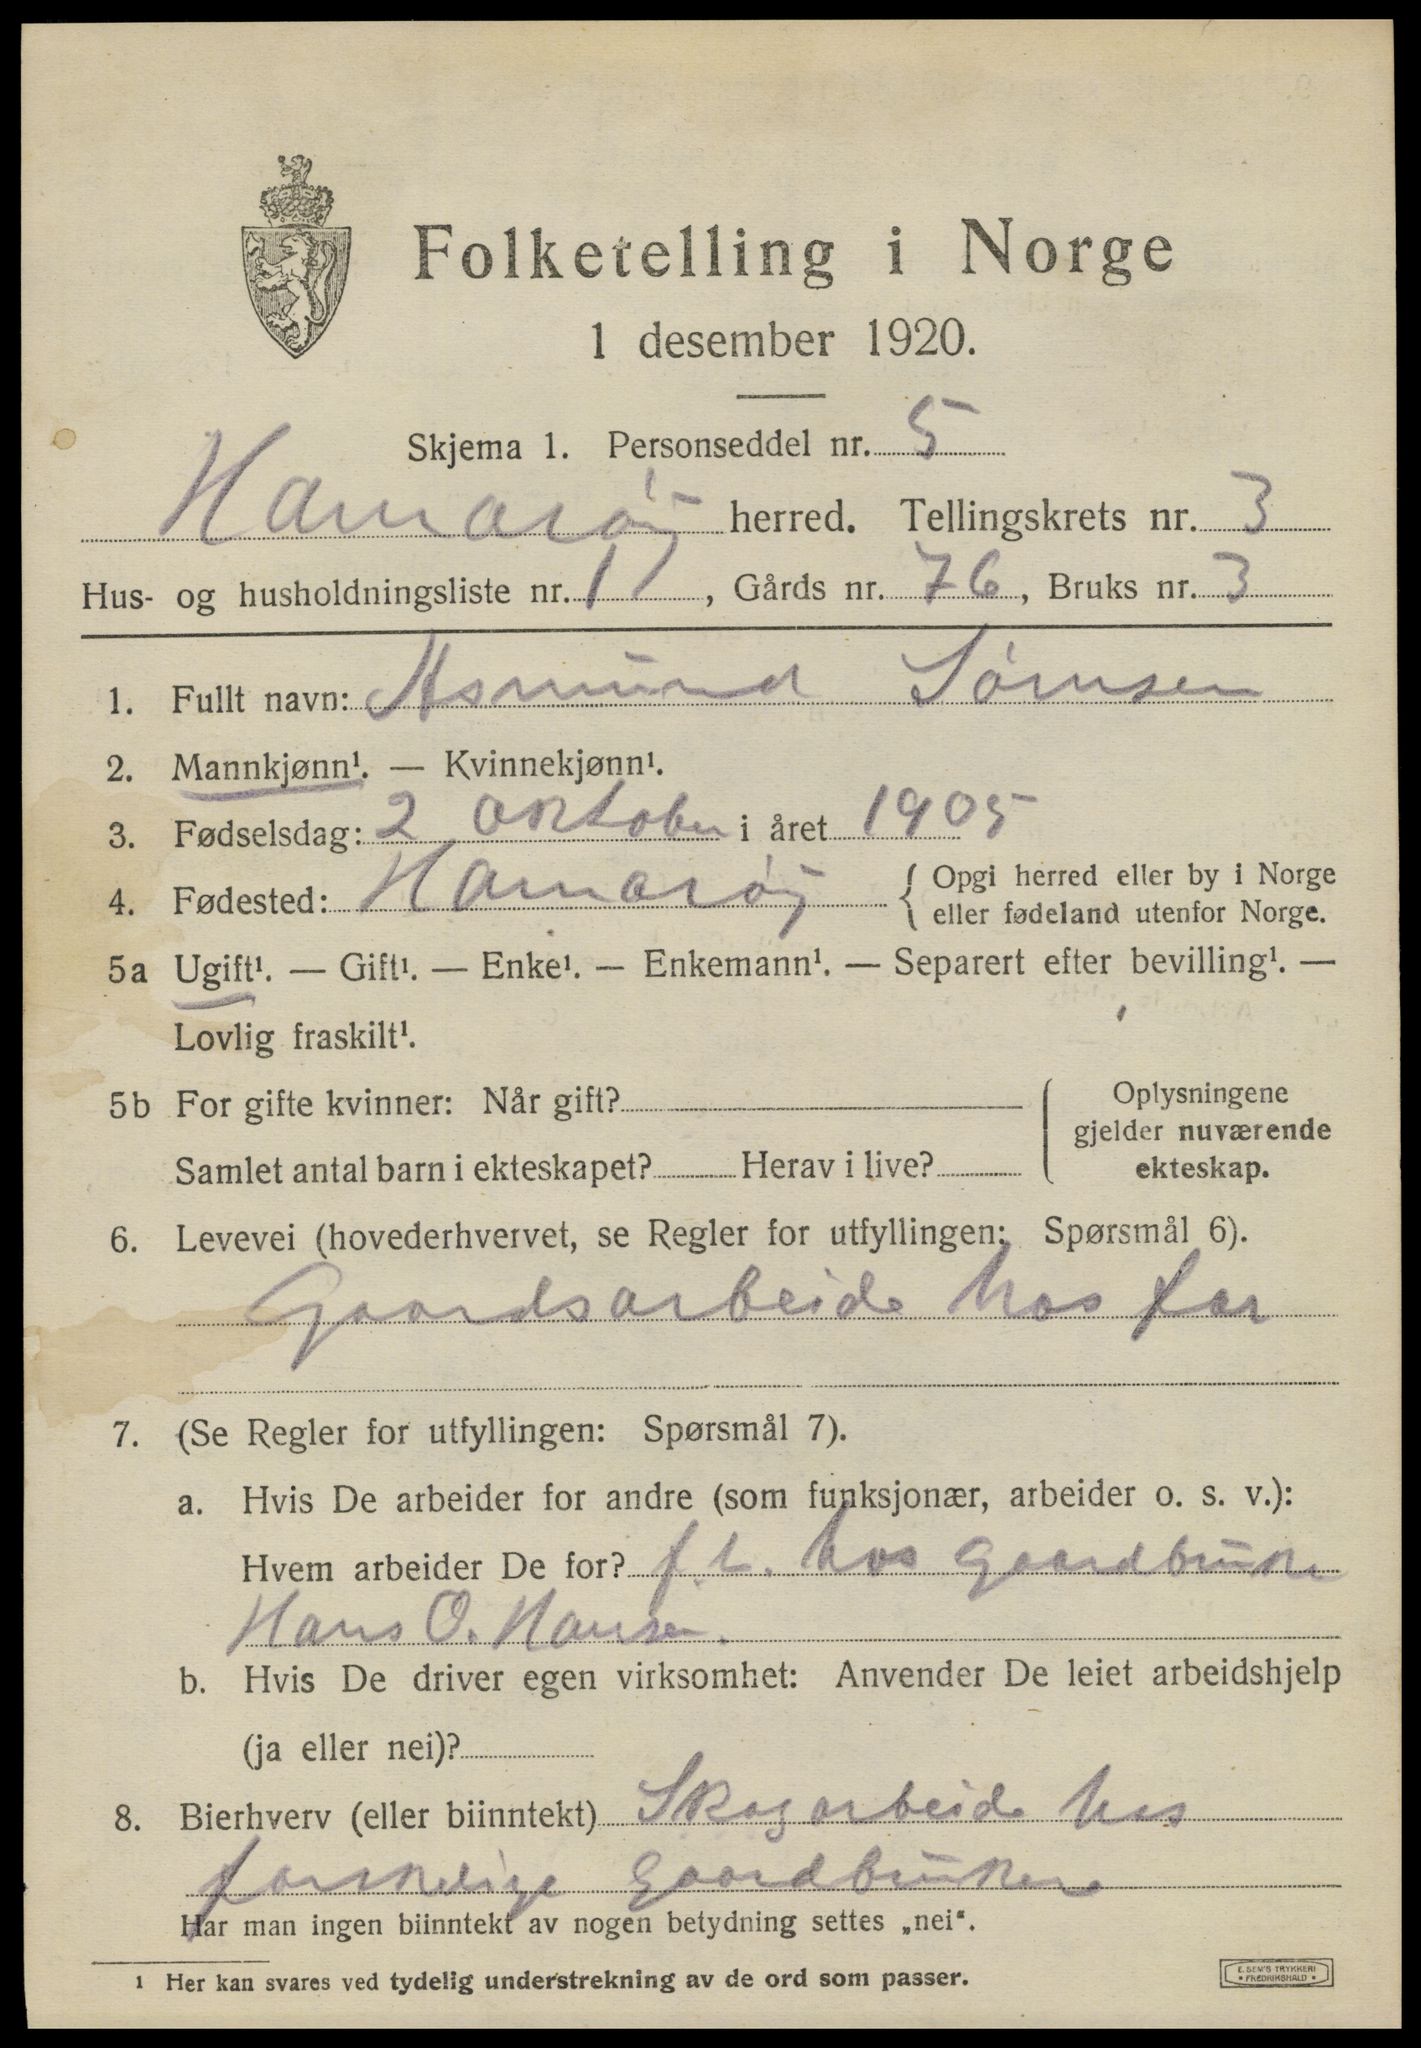 Folketelling i Norge
1 desember 1920.
Skjema 1. Personseddel nr. 5
Hamarøy herred. Tellingskrets nr. 3
Hus- og husholdningsliste nr. 11, Gårds nr. 76, Bruks nr. 3
1. Fullt navn: Asmund Sørnsen
2. Mannkjønn¹. — Kvinnekjønn¹.
3. Fødselsdag: 2 Oktober i året 1905
4. Fødested: Hamarøy { Opgi herred eller by i Norge
eller fødeland utenfor Norge.
5a Ugift¹. — Gift¹. — Enke¹. — Enkemann¹. — Separert efter bevilling¹. —
Lovlig fraskilt¹.
5b For gifte kvinner: Når gift?
Samlet antal barn i ekteskapet? Herav i live?
Oplysningene
gjelder nuværende
ekteskap.
6. Levevei (hovederhvervet, se Regler for utfyllingen: Spørsmål 6).
Gaardsarbeide hos far
7. (Se Regler for utfyllingen: Spørsmål 7).
a. Hvis De arbeider for andre (som funksjonær, arbeider o. s. v.):
Hvem arbeider De for? f.t. hos Gaardbruker
Hans O. Hansen.
b. Hvis De driver egen virksomhet: Anvender De leiet arbeidshjelp
(ja eller nei)?
8. Bierhverv (eller biinntekt) Skogarbeide hos
forskelige Gaardbrukere
Har man ingen biinntekt av nogen betydning settes „nei“.
¹ Her kan svares ved tydelig understrekning av de ord som passer.
E. SEM'S TRYKKERI
• FREDRIKSHALD •